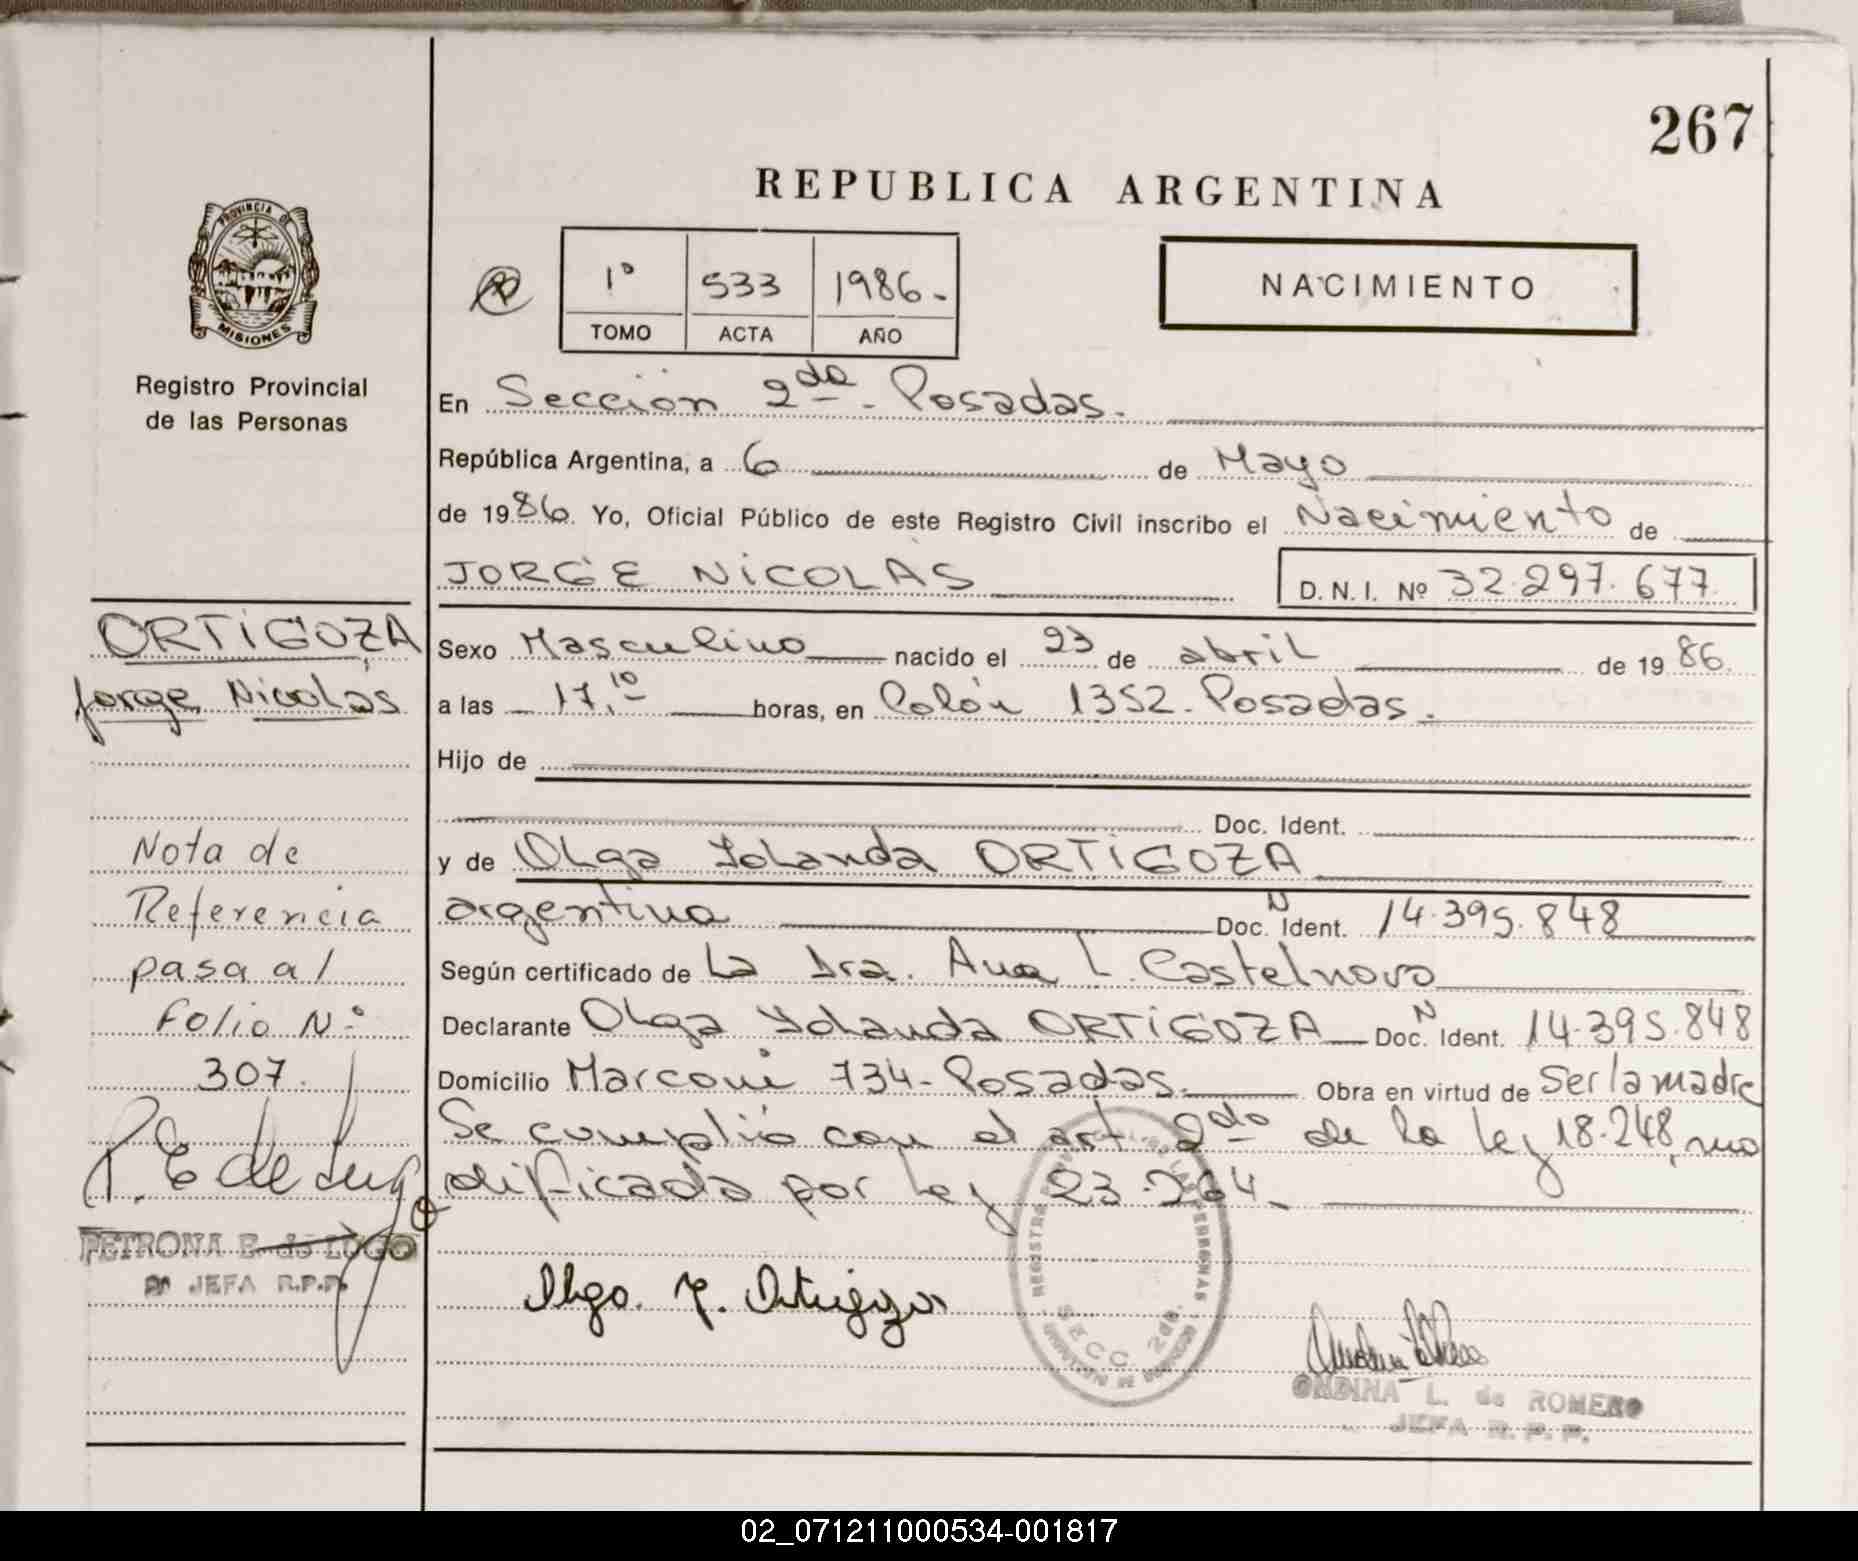 267
REPUBLICA ARGENTINA
PROVINCIA DE
MISIONES
Registro Provincial
de las Personas
1º 533 1986.-
TOMO ACTA AÑO
NACIMIENTO
En Sección 2da. Posadas.
República Argentina, a 6 de Mayo
de 1986. Yo, Oficial Público de este Registro Civil inscribo el Nacimiento de
JORGE NICOLAS
D. N. I. Nº 32.297.677
ORTIGOZA
Jorge Nicolás
Sexo Masculino nacido el 23 de abril de 1986.
a las 17,10 horas, en Colón 1352. Posadas.
Hijo de
Doc. Ident.
y de Olga Yolanda ORTIGOZA
argentina Doc. N Ident. 14.395.848
Según certificado de La Dra. Ana L. Castelnovo
Declarante Olga Yolanda ORTIGOZA Doc. N Ident. 14.395.848
Domicilio Marconi 734- Posadas. Obra en virtud de Ser la madre
Se cumplió con el art. 2do de la Ley 18.248, mo
dificada por Ley 23.264.-
Nota de
Referencia
pasa al
Folio Nº
307.
P. E de Lugo
PETRONA E. de LUGO
2º JEFA R.P.P.
Olga Y. Ortigoza
SECC. 2da.
ONDINA L. de ROMERO
JEFA R. P. P.
02_071211000534-001817